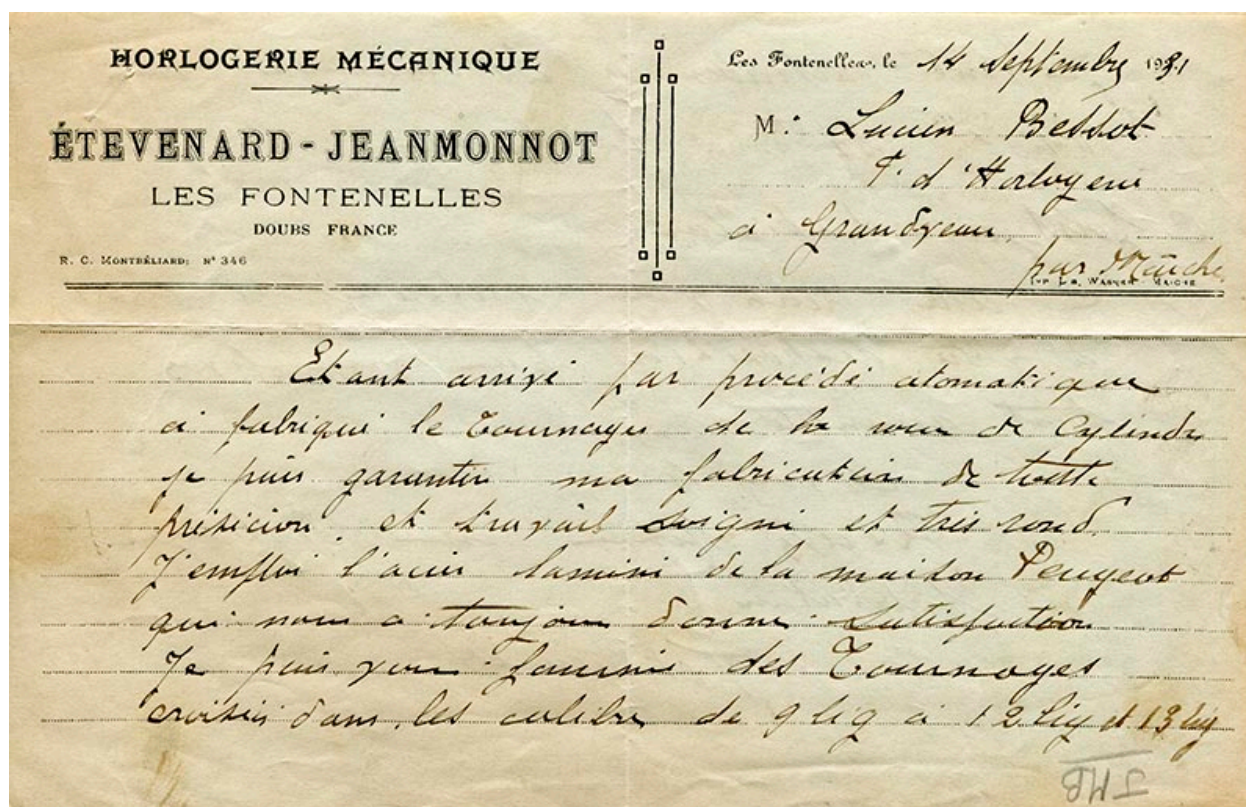 HORLOGERIE MÉCANIQUE
ÉTEVENARD - JEANMONNOT
LES FONTENELLES
DOUBS FRANCE
R. C. MONTBÉLIARD: Nº 346
Les Fontenelles, le 14 Septembre 1931
M. Lucien Bessot
F. d'Horlogerie
à Grandjean
par Maîche
Etant arrivé par procédé atomatique
à fabriqué le Tournages de la roue de Cylindre
je puis garantir ma fabrication de toutte
présicion, et travail soigné et très rond
J'emploi l'acier laminé de la maison Peugeot
qui nous a toujour donné satisfaction
Je puis vous fournir des Tournages
croisés dans les calibre de 9 lig à 12 lig et 13 lig
JMB